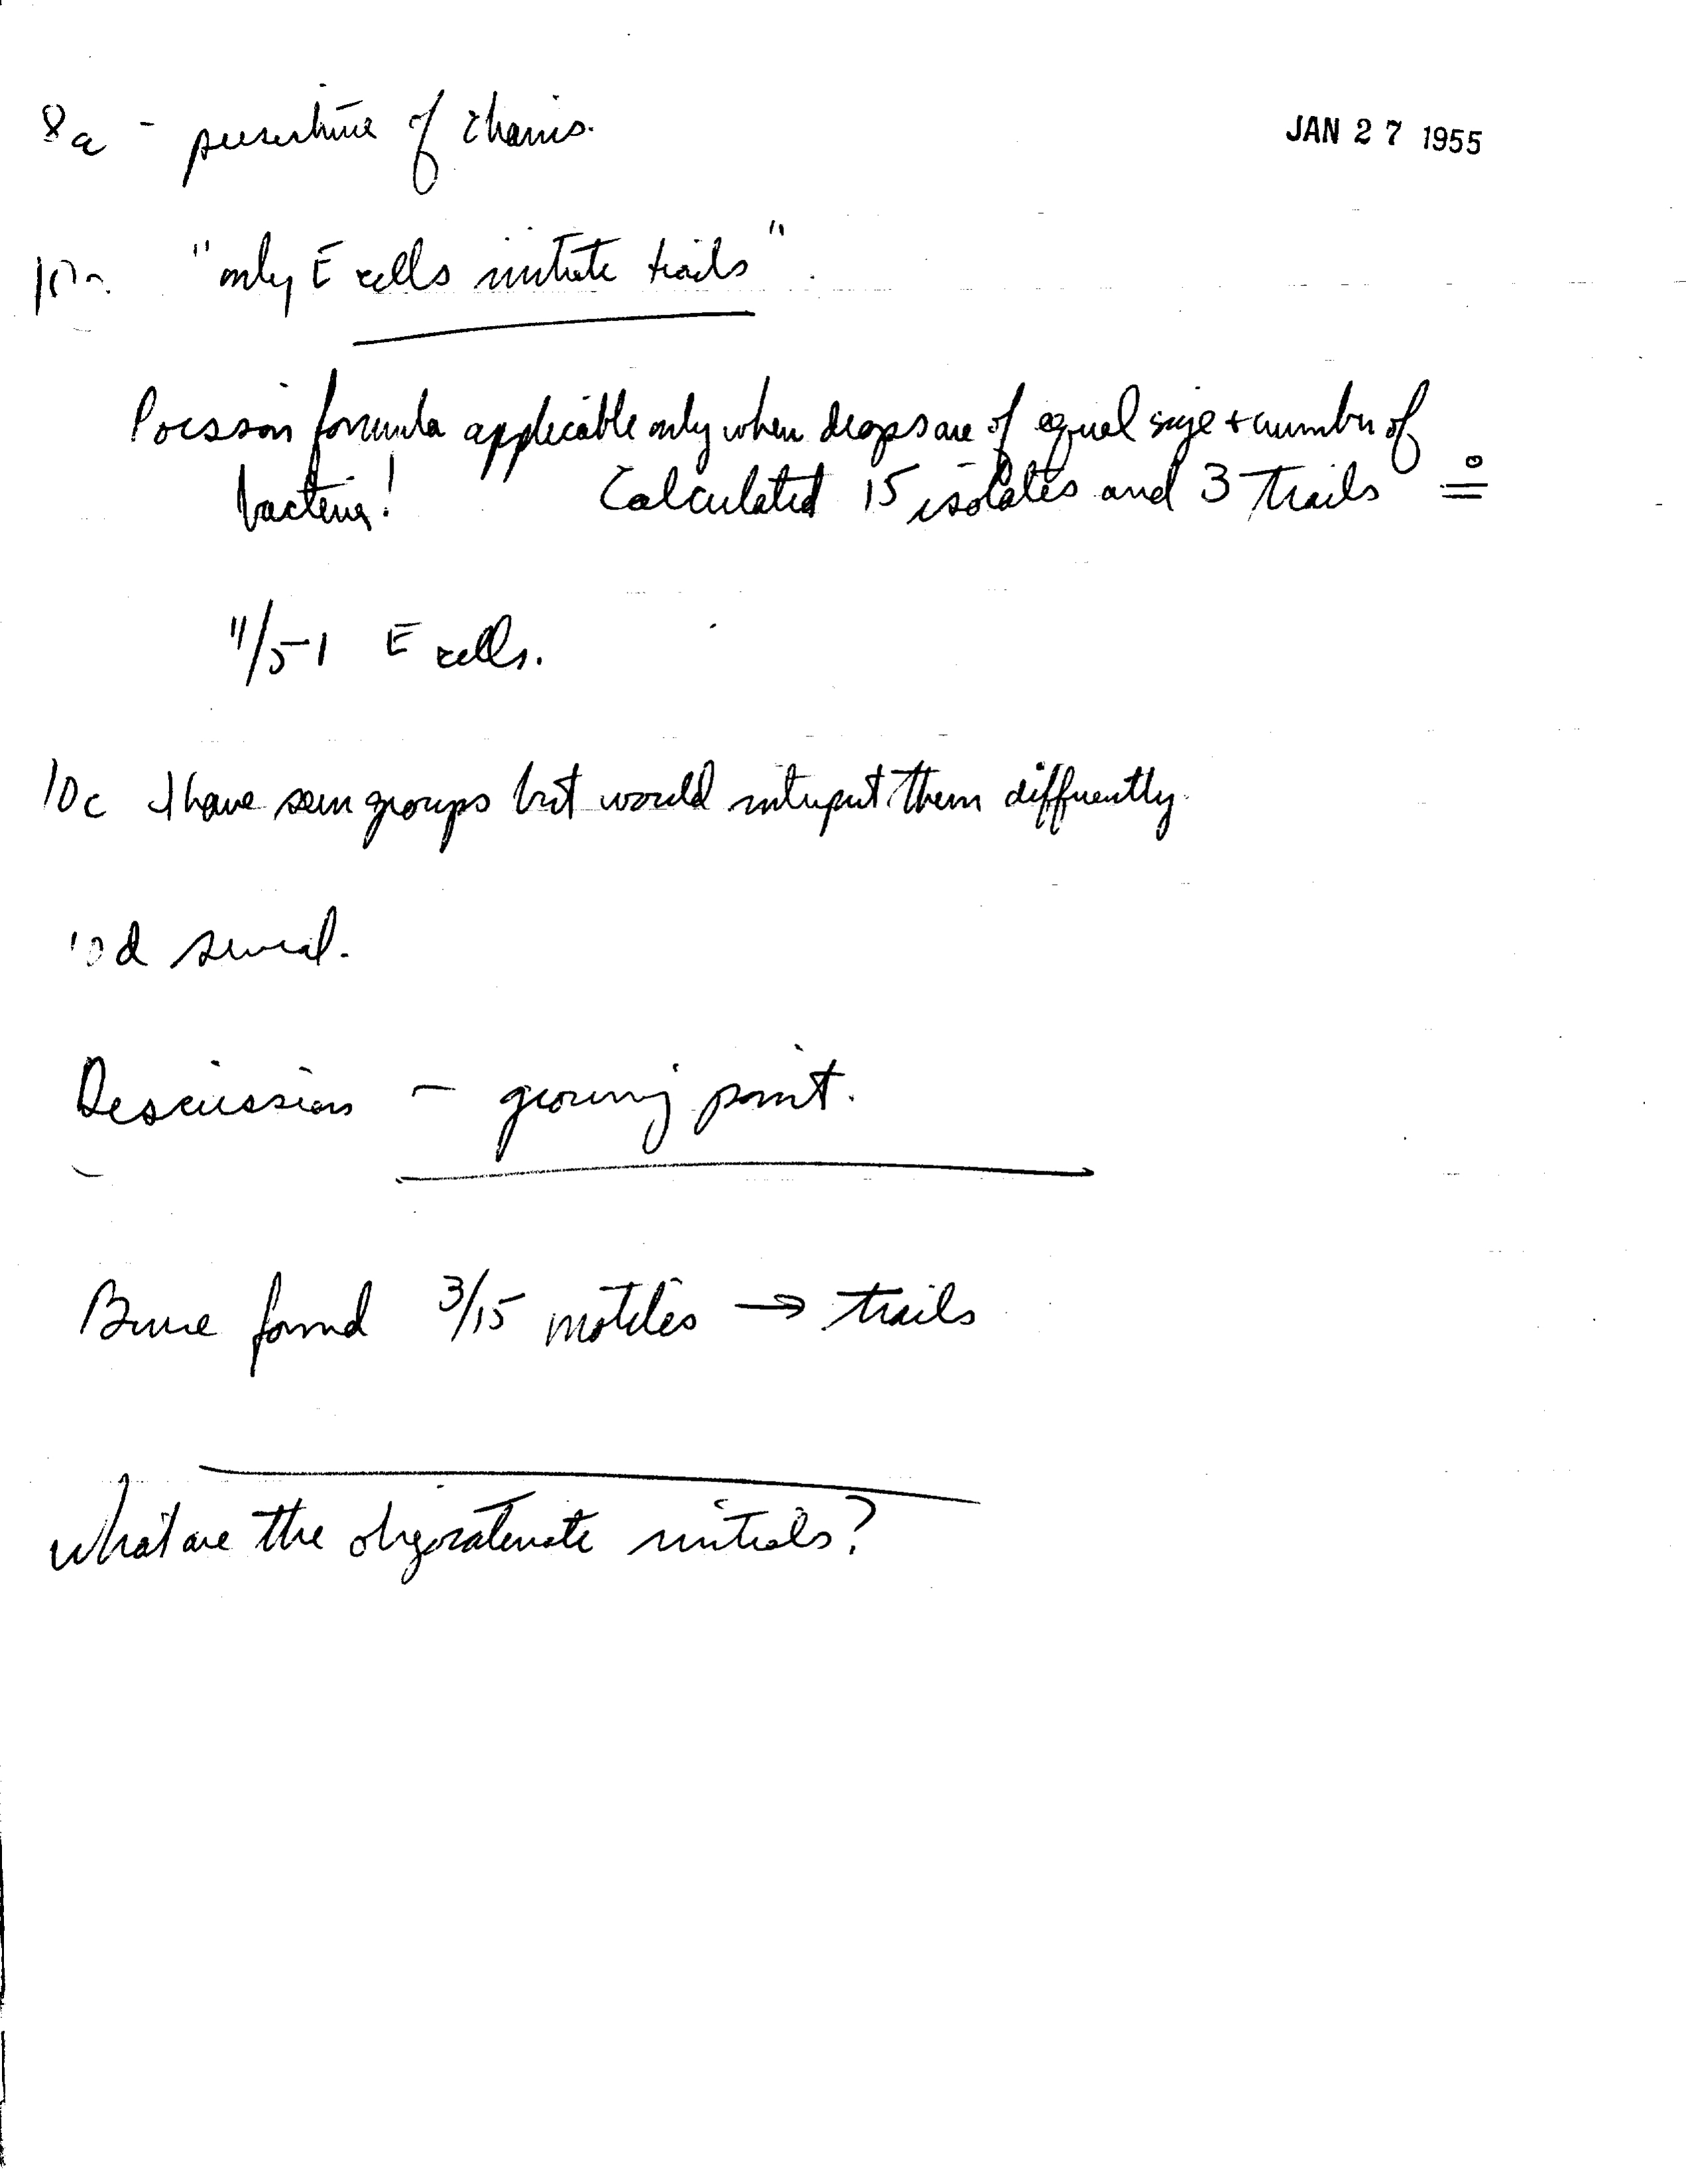 8a - persistence of chains.
JAN 27 1955
10a. "only E cells initiate trails".
Poisson formula applicable only when drops are of equal size + number of
bacteria! Calculated 15 isolates and 3 trails ≗
11/51 E cells.
10c I have seen groups but would interpret them differently.
10d several.
Discussion - growing point.
found 3/15 motiles → trails
What are the initials?